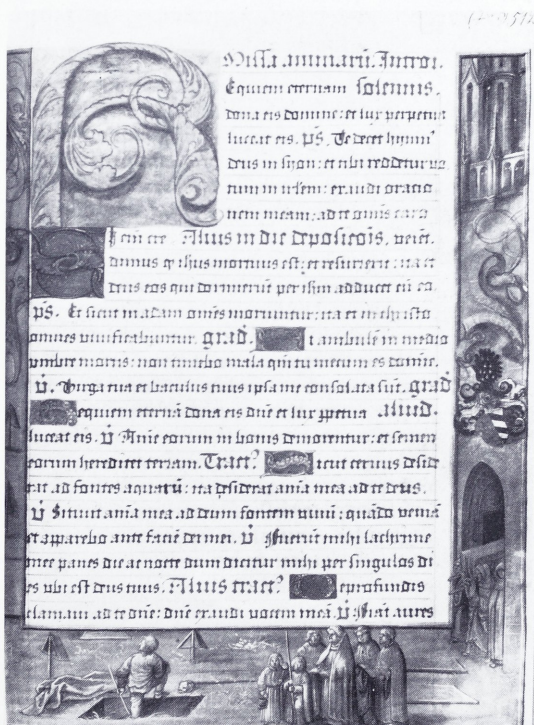 Missa animarū. Introi.
Equiem eternam solennis.
dona eis domine: et lux perpetua
luceat eis. p̄s. Te decet hymn᾽
deus in syon: et tibi reddetur vo
tum in irlem: exaudi oratio
nem meam: ad te omīs caro
veniet. Alius in die deposicōis.
damus q̄ ihūs mortuus est: et resurrexit: ita et
deus eos qui dormierūt per ihm̄ adducet cū eo.
p̄s. Et sicut in adam omēs moriuntur: ita et in christo
omnes vivificabuntur. grad̄. i ambulē in medio
umbre mortis: non timebo mala qm̄ tu mecum es domīe.
v̄. Virga tua et baculus tuus ipsa me consolata sūt. grad̄
equiem eternā dona eis dn̄e et lux ppetua Aliud.
luceat eis. v̄ Anīe eorum in bonis demorentur: et semen
eorum hereditet terram. Tract᾽ icut cervus deside
rat ad fontes aquarū: ita desiderat anīa mea ad te deus.
v̄ Sitivit anīa mea ad deum fontem vivū: quādo veniā
et apparebo ante faciē dei mei. v̄ Fuerūt mihi lachrime
mee panes die ac nocte dum dicitur mihi per singulos di
es ubi est deus tuus. Alius tract᾽ e profundis
clamavi ad te dn̄e: dn̄e exaudi vocem meā. v̄ Fiāt aures